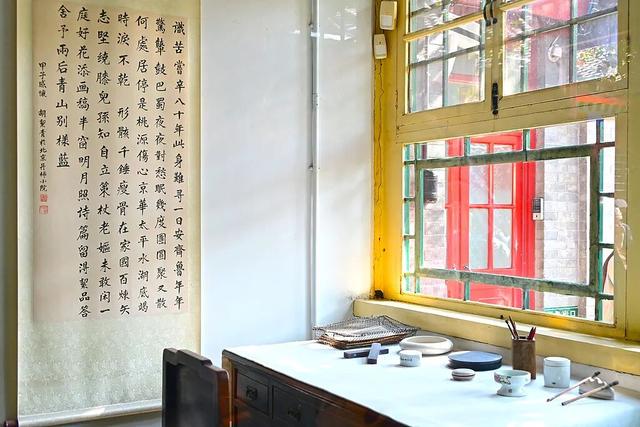 識苦嘗辛八十年此身難尋一日安齊魯年年
驚鼙鼓巴蜀夜夜對愁眠幾度團圓聚又散
何處居停是桃源傷心京華太平水湖底竭
時淚不乾 形骸千錘瘦骨在家國百煉矢
志堅繞膝兒孫知自立策杖老嫗未敢闲一
庭好花添画稿半窗明月照詩篇留得絜品答
舍予雨后青山別樣藍
甲子感懷 胡絜青於北京丹柿小院